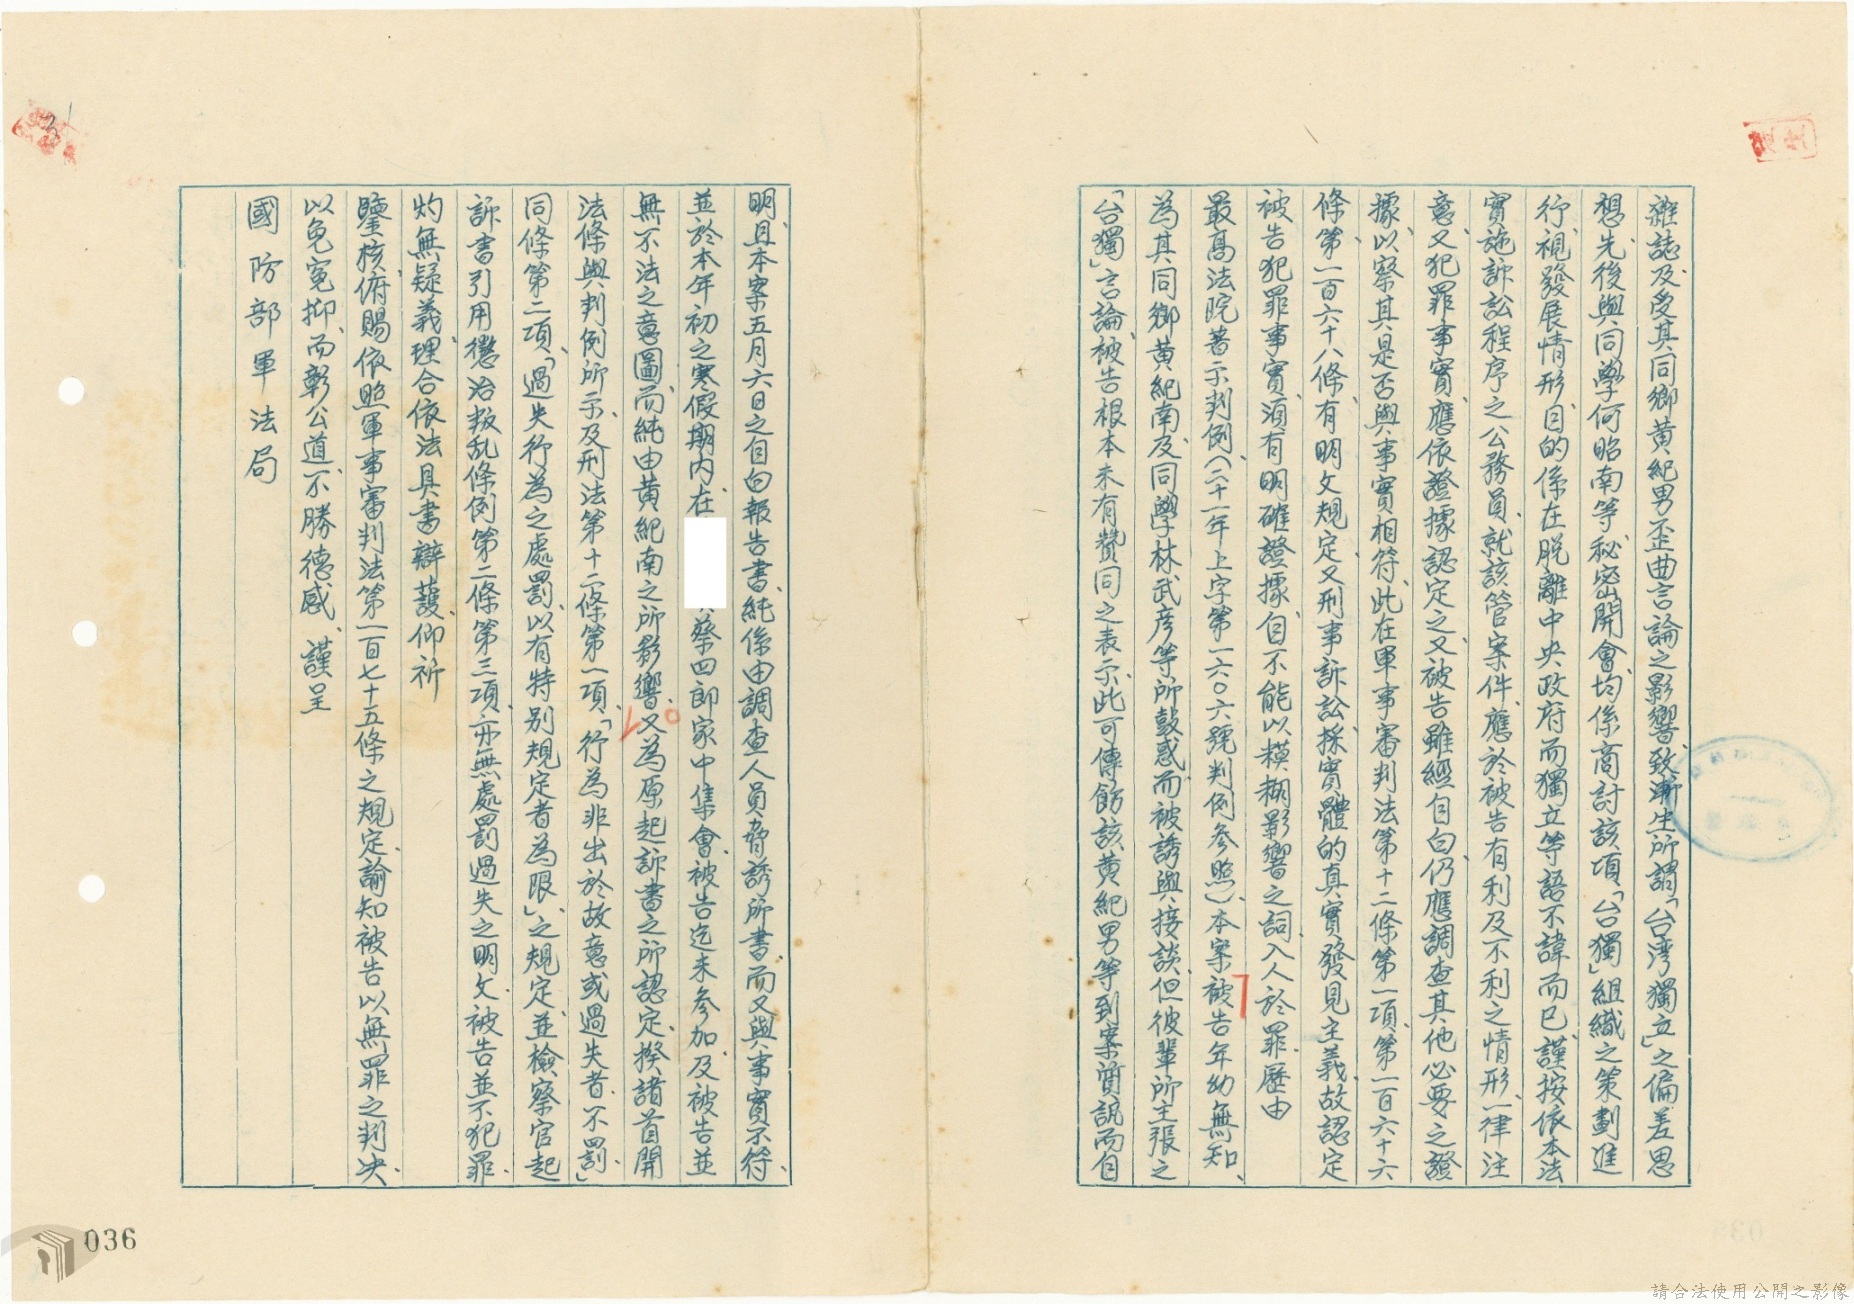 雜誌、及受其同鄉黃紀男歪曲言論之影響、致漸生所謂「台湾獨立」之偏差思
想、先後與同學何昭南等、秘密開會、均係商討該項「台獨」組織之策劃進
行、視發展情形、目的係在脫離中央政府而獨立等語不諱而已、謹按依本法
實施訴訟程序之公務員、就該管案件、應於被告有利及不利之情形、一律注
意、又犯罪事實、應依證據認定之、又被告雖經自白、仍應調查其他必要之證
據、以察其是否與事實相符、此在軍事審判法第十二條第一項、第一百六十六
條、第一百六十八條、有明文規定、又刑事訴訟、採實體的真實發見主義、故認定
被告犯罪事實、須有明確證據、自不能以糢糊影響之詞、入人於罪、歷由
最高法院著示判例、(二十一年上字第一六〇六號判例參照)、本案被告年幼無知、
為其同鄉黃紀南、及同學林武彥等所鼓惑、而被誘與接談、但彼輩所主張之
「台獨」言論、被告根本未有贊同之表示、此可傳飭該黃紀男等到案質訊而自
明、且本案五月六日之自白報告書、純係由調查人員脅誘所書、而又與事實不符、
並於本年初之寒假期內、在
蔡四郎家中集會、被告迄未參加、及被告並
無不法之意圖、而純由黃紀南之所影響、又為原起訴書之所認定、揆諸首開
法條與判例所示、及刑法第十二條第一項、「行為非出於故意或過失者、不罰」、
同條第二項、「過失行為之處罰、以有特別規定者為限」、之規定、並檢察官起
訴書引用懲治叛乱條例第二條第三項、亦無處罰過失之明文、被告並不犯罪、
灼無疑義、理合依法具書辯護、仰祈
鑒核、俯賜依照軍事審判法第一百七十五條之規定、諭知被告以無罪之判决、
以免冤抑、而彰公道、不勝德感、謹呈
國防部軍法局
036
請合法使用公開之影像